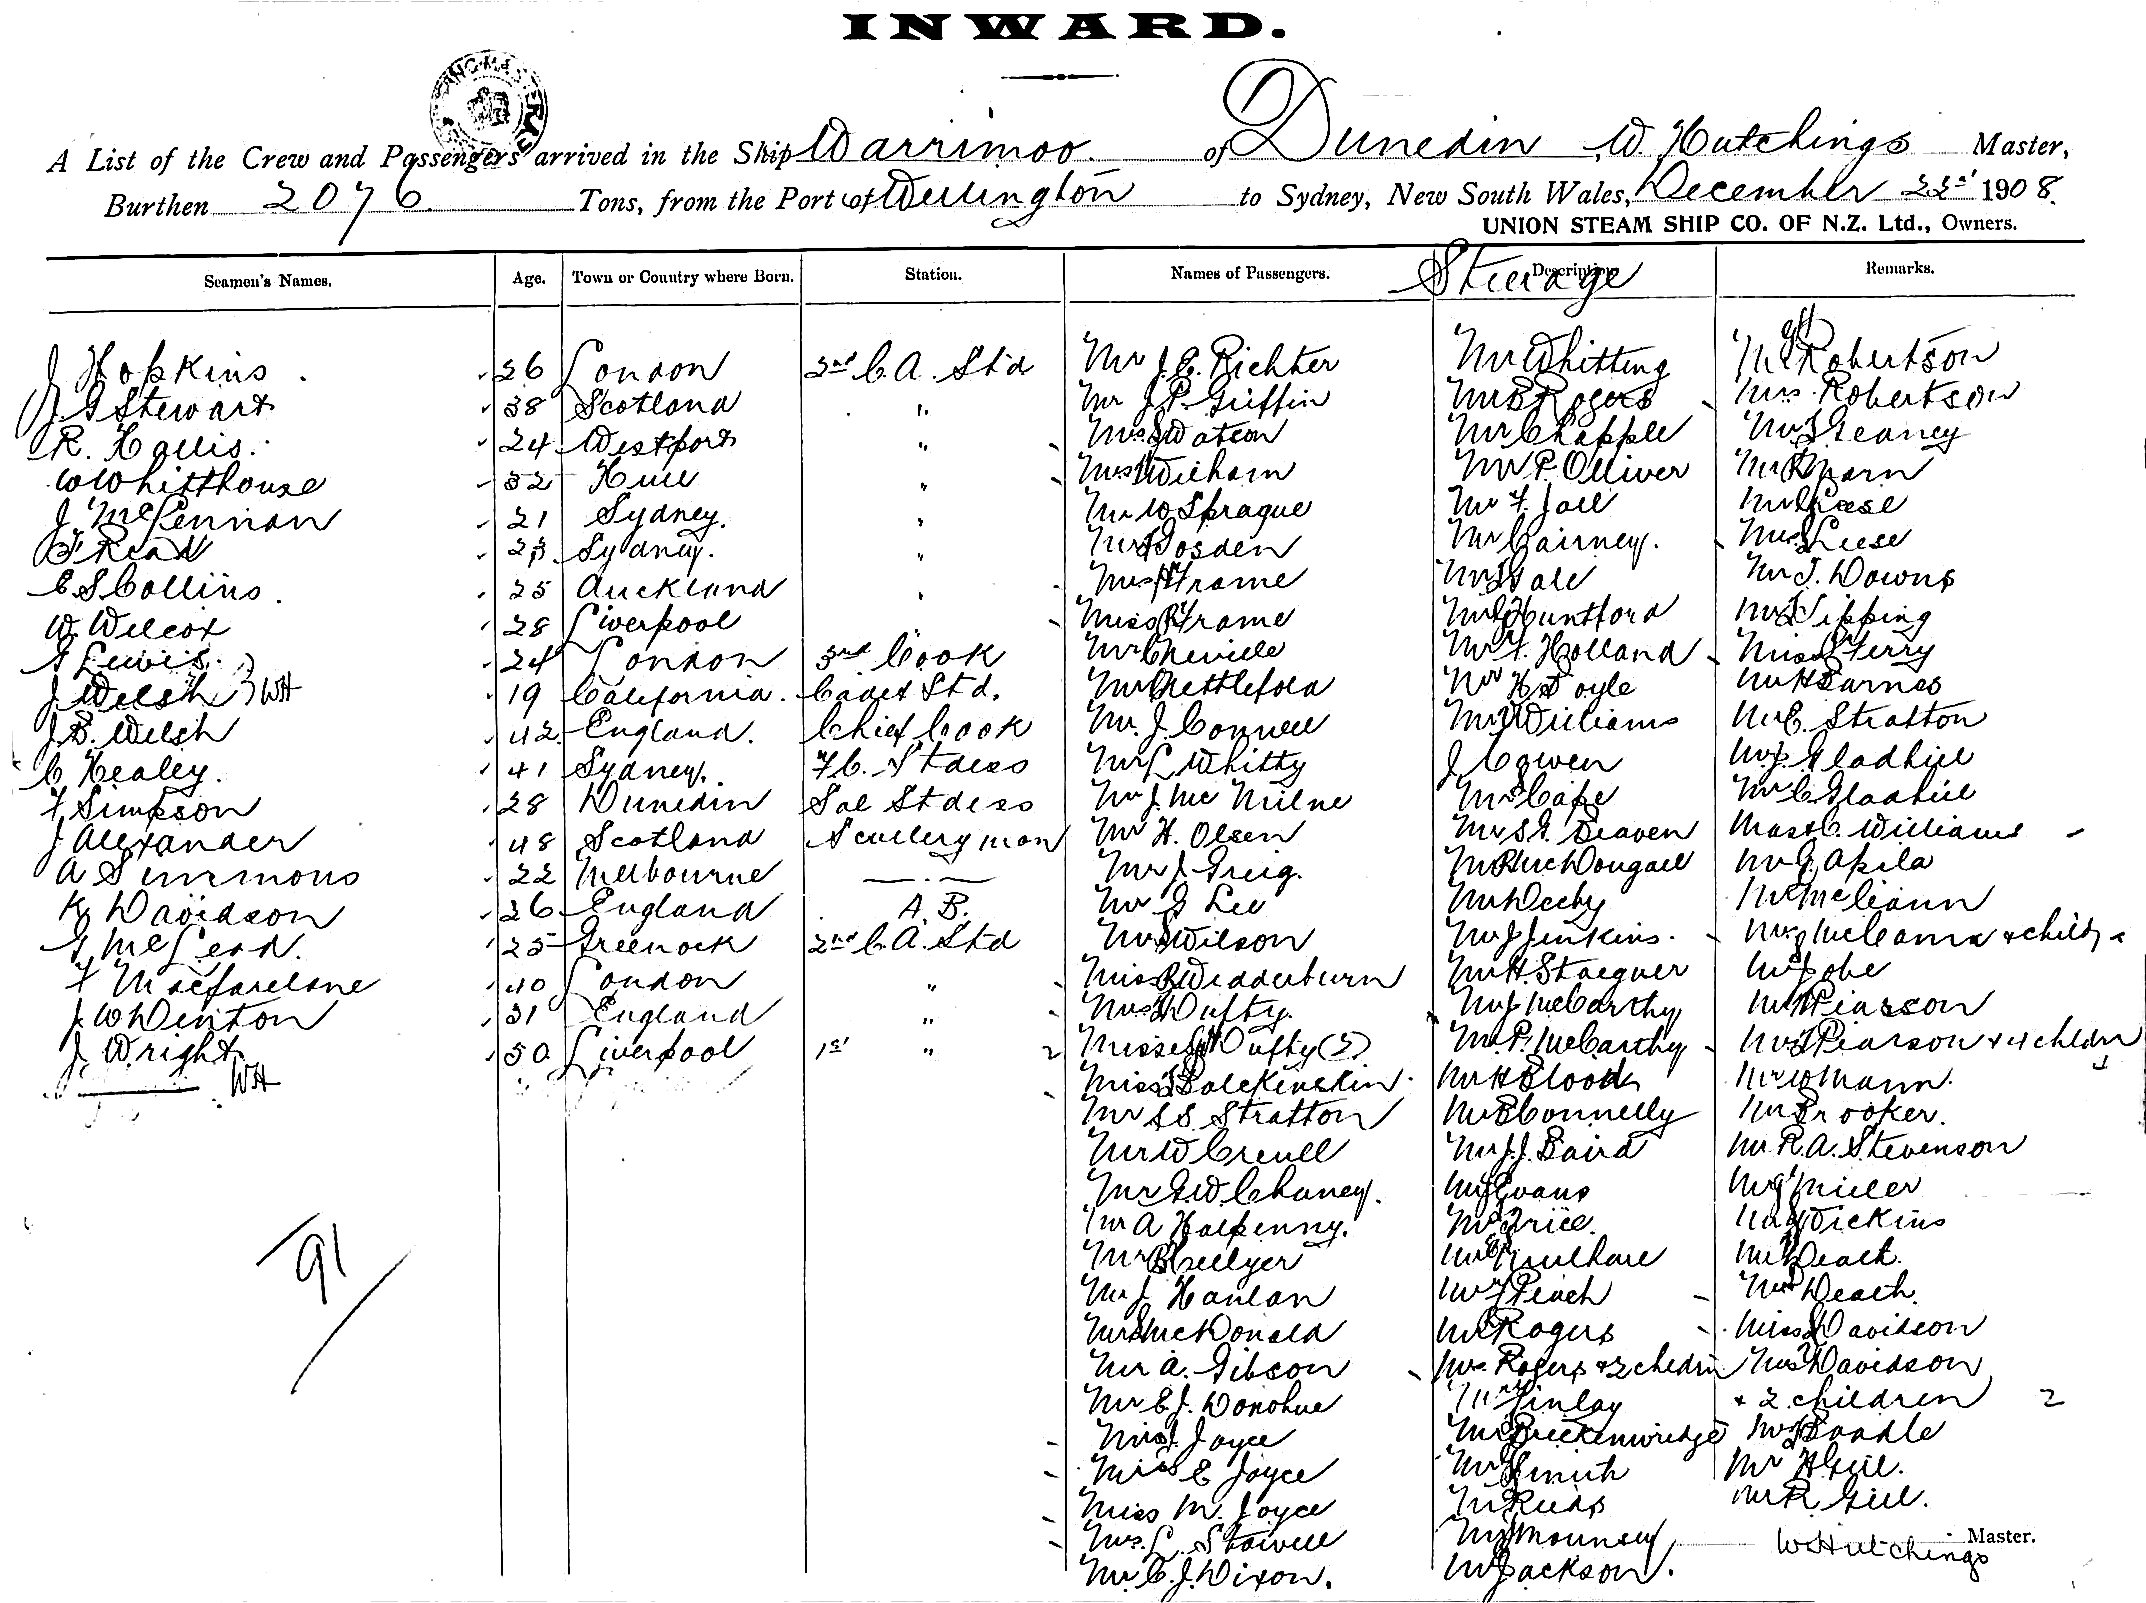 INWARD.
A List of the Crew and Passengers arrived in the Ship Warrimoo. of Dunedin W Hutchings Master,
Burthen 2076 Tons, from the Port of Wellington to Sydney, New South Wales, December 22nd 1908.
UNION STEAM SHIP CO. OF N.Z. Ltd., Owners.
Seamen's Names. Age. Town or Country where Born. Station. Names of Passengers. Description Steerage Remarks.
J Hopkins. 26 London 2nd C. A. Std Mr J. E. Richter Mr Whitting Mr Robertson
J. G Stewart 38 Scotland " Mr J. P. Griffin Mr Rogers Mrs. Robertson
R. Hallis. 24 Westport " Mrs Watson Mr Chapple Mr Geaney
W Whitthouse 32 Hull " Mrs Wilham Mr P. Olliver Mr Marn
J. McLennan 21 Sydney. " Mr W Sprague Mr F. Jall Mr Leese
F Read 23 Sydney. " Mr Gosden Mr Cairney. Mrs Leese
C S Collins. 25 Auckland " Mrs Frame Mr Hale Mr J. Downs
W. Wilcox 28 Liverpool Miss Frame Mr Huntford Mr Tipping
G Lewis. 24 London 3rd Cook Mr Neville Mr F. Holland Miss Terry
J Welsh WH 19 California. Cadet Std. Mr Nettlefold Mr H Doyle Mr H Barnes
J. B. Welsh 42 England. Chief Cook Mr. J. Connell Mr Williams Mr E. Stratton
C Healey. 41 Sydney. F C. Stdess Mr L Whitty J Cowen Mr J. Gladhill
F. Simpson 28 Dunedin Sal Stdess Mr J. Mc Milne Mr Cape Mr C Gladhill
J Alexander 48 Scotland Scullery man Mr H. Olsen Mr S. G. Deaven Mast C. Williams
A Simmons 22 Melbourne — . — Mr J. Greig. Mr McDougall Mr G. Apila
K Davidson 26 England A. B. Mr G Lee Mr Decby Mr McCann
G McLeod. 25 Greenock 2nd C. A. Std Mr Wilson Mr J Jenkins. Mrs McCann + child
F Macfarlane 40 London " Miss Wedderburn Mr H. Staeguer Mr Jobe
J. W Denton 31 England " Mrs Dufty. Mr J McCarthy Mr Pearson
J. Wright WH 50 Liverpool 1st " Misses Dufty (2) Mr P. McCarthy Mrs Pearson + 4 chldrn
Miss Mr H Blood Mr W Mann.
Mr S S. Stratton Mr Connelly Mr Brooker.
Mr W Crenell Mr J. J. Baird Mr R. A. Stevenson
Mr G. W. Chaney. Mr Evans Mr Miller
Mr A Halpenny. Mr Price. Mr Dickins
Mr Hellyer Mr Mulhare Mr Death.
91 Mr J. Hanlan Mr Peach Mrs Death.
Mr McDonald Mr Rogers Miss Davidson
Mr A. Gibson Mrs. Rogers + 2 chldrn Mrs Davidson
Mr E. J. Donohue Mr Finlay + 2 children 2
Mrs J. Joyce Mr Breckenwridge Mr Boadle
Miss E Joyce Mr Smith Mr H Gill.
Miss M. Joyce Mr Reids Mr R. Gill.
Mrs. L. Stowell Mr J Mounsey W Hutchings Master.
Mr. C. J. Dixon. Mr Jackson.